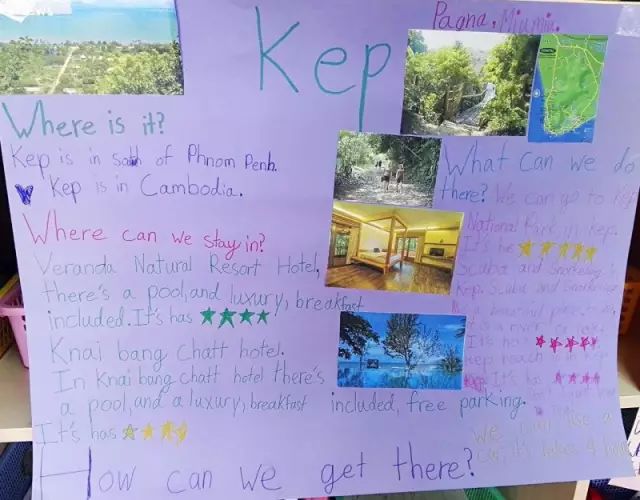 Kep
Paona, Miumiu.
Where is it?
Kep is in south of Phnom Penh.
Kep is in Cambodia.
Where can we stay in?
Veranda Natural Resort Hotel,
there's a pool, and luxury, breakfast
included. It's has ★★★★
Knai bang chatt hotel.
In Knai bang chatt hotel there's
a pool, and a luxury, breakfast included, free parking.
It's has ★★★★
What can we do
there? We can go to Kep
National Park in Kep.
It's has ★★★★★
Scuba and Snorkeling in
Kep. Scuba and Snorkeling
It's has ★★★★★
Kep beach
It's has ★★★★
How can we get there?
We can use a
car, it's takes 4 hour